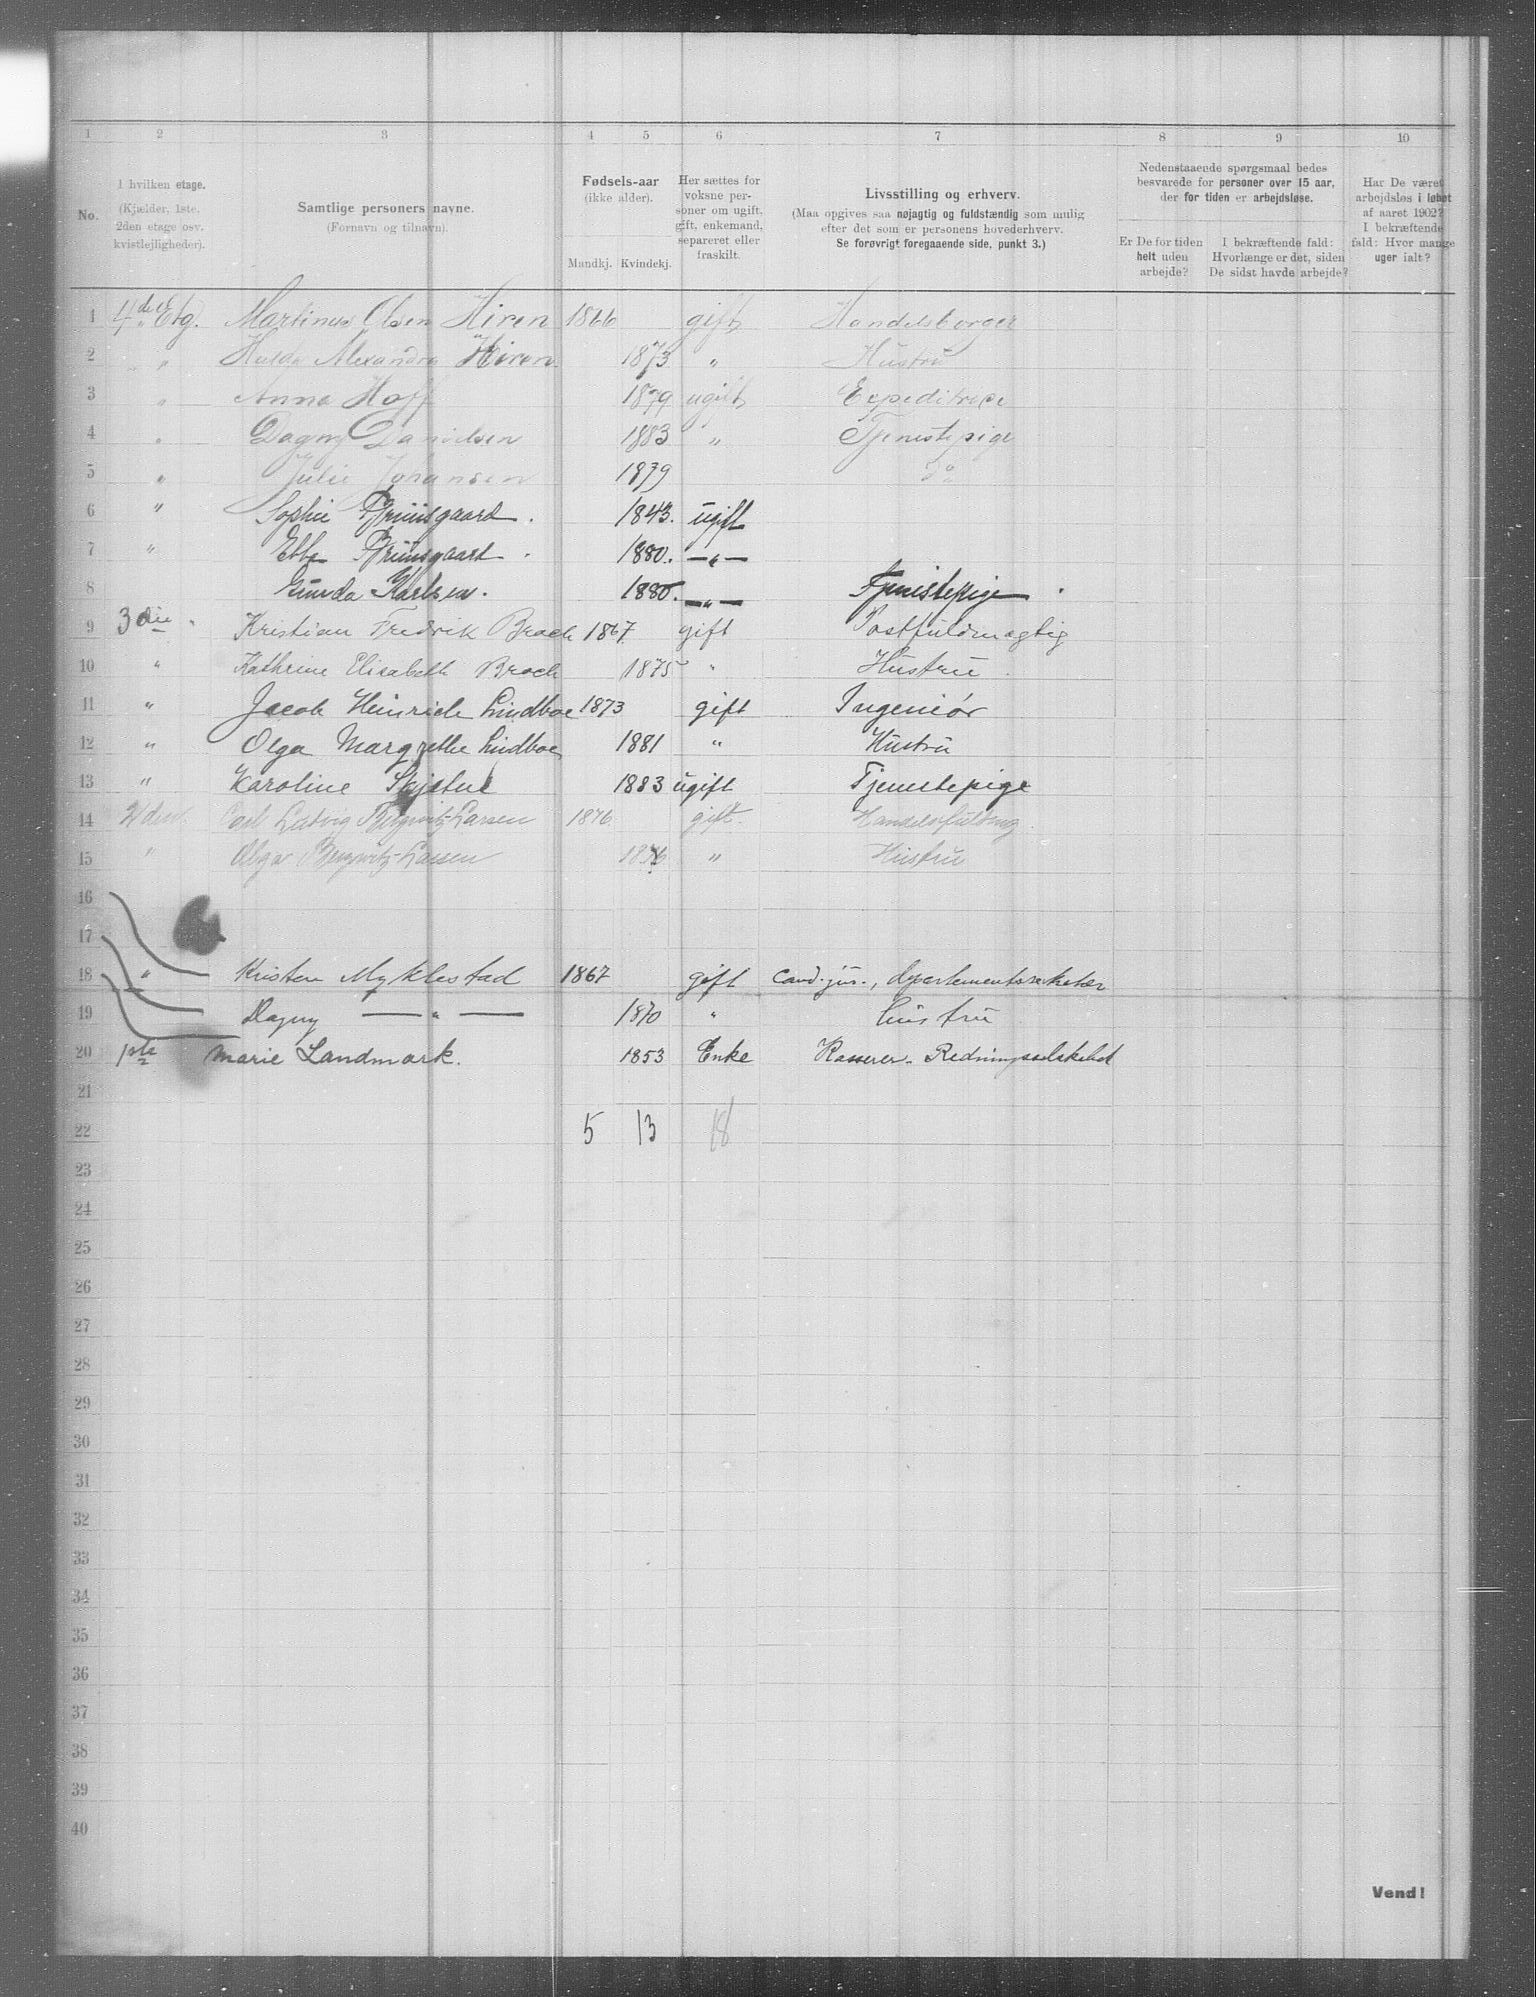 1 2 3 4 5 6 7 8 9 10
No. I hvilken etage. (Kjælder, 1ste, 2den etage osv. kvistlejligheder). Samtlige personers navne. (Fornavn og tilnavn). Fødsels-aar (ikke alder). Mandkj. Kvindekj. Her sættes for voksne personer om ugift, gift, enkemand, separeret eller fraskilt. Livsstilling og erhverv. (Maa opgives saa nøjagtig og fuldstændig som mulig efter det som er personens hovederhverv. Se forøvrigt foregaaende side, punkt 3.) Nedenstaaende spørgsmaal bedes besvarede for personer over 15 aar, der for tiden er arbejdsløse. Er De for tiden helt uden arbejde? I bekræftende fald: Hvorlænge er det, siden De sidst havde arbejde? Har De været arbejdsløs i løbet af aaret 1902? I bekræftende fald: Hvor mange uger ialt?
1 4de Etg. Martinus Olsen Hiren 1866 gift Handelsborger
2 " Hulda Alexandra Hiren 1873 " Hustru
3 " Anna Hoff 1879 ugift Expeditrice
4 " Dagny Danielsen 1883 " Tjenestepige
5 " Julie Johansen 1879 do
6 " Sophie Bruusgaard. 1843. ugift
7 " Ebba Bruusgaard. 1880. —"—
8 Gunda Karlsen. 1880. —"— Tjenestepige.
9 3die Kristian Fredrik Broch 1867 gift Postfuldmægtig
10 " Kathrine Elisabeth Broch 1875 " Hustru.
11 " Jacob Heinrich Lindboe 1873 gift Ingeniør
12 " Olga Margrethe Lindboe 1881 " Hustru
13 " Karoline 1883 ugift Tjenestepige
14 2den Carl Ludvig Bergwitz-Larsen 1876 gift.
15 " Olga Bergwitz-Larsen 1876 " Hustru
16
17
18 " Kristen Myklestad 1867 gift cand. jur., departementssekretær
19 Dagny —"— 1870 " hustru
20 1ste Marie Landmark. 1853 Enke Kasserer. Redningsselskabet
21
22 5 13 18
23
24
25
26
27
28
29
30
31
32
33
34
35
36
37
38
39
40
Vend!